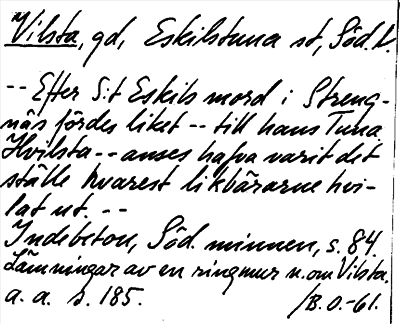 Vilsta, gd, Eskilstuna st, Söd. l.
-- Efter S:t Eskils mord i Streng-
näs fördes liket -- till hans Tuna,
Hvilsta -- anses hafva varit det
ställe hvarest likbärarne hvi-
lat ut. --
Indebetou, Söd. minnen, s. 84.
Lämningar av en ringmur n. om Vilsta.
a. a. s. 185.
/B. O. -61.